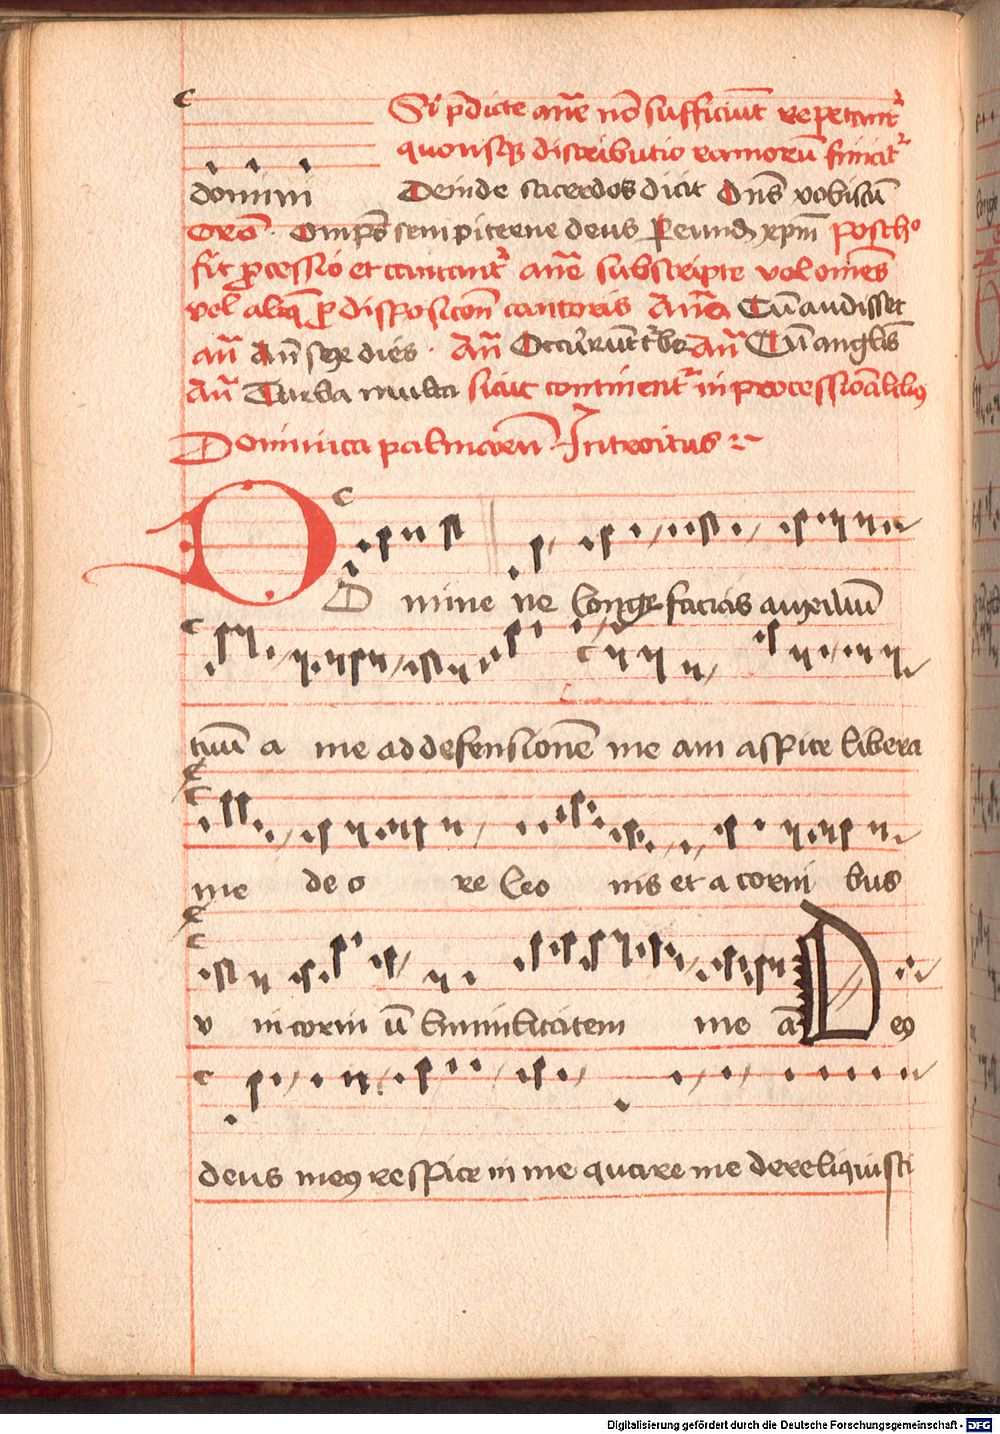 Si p̄dicte ane nō sufficiūt repetant᷑
quousq̢ distributio ramorū finiat᷑
domini Deinde sacerdos dicit Dn̄s vobiscū
Orō. Omp̄s sempiterne deus Per eund xpm̄
fit ꝓcessio et cantant᷑ ane subscripte vel omēs
vel aliq̄ ꝓ disposicōn cantoris Ana Cū audisset
an̄ An̄ sex dies. An̄ Occur̄unt turbe An̄ Cū angl̄is
An̄ Turba multa sicut continent᷑ in processiōalibꝰ
Dominica palmarū Introitus
Domine ne longe facias auxiliū
tuū a me ad defensionē me am aspice libera
me de o re leo nis et a corni bus
v in corni ū humilitatem me ā Deꝰ
deus meꝰ respice in me quare me dereliquisti
Digitalisierung gefördert durch die Deutsche Forschungsgemeinschaft - DFG